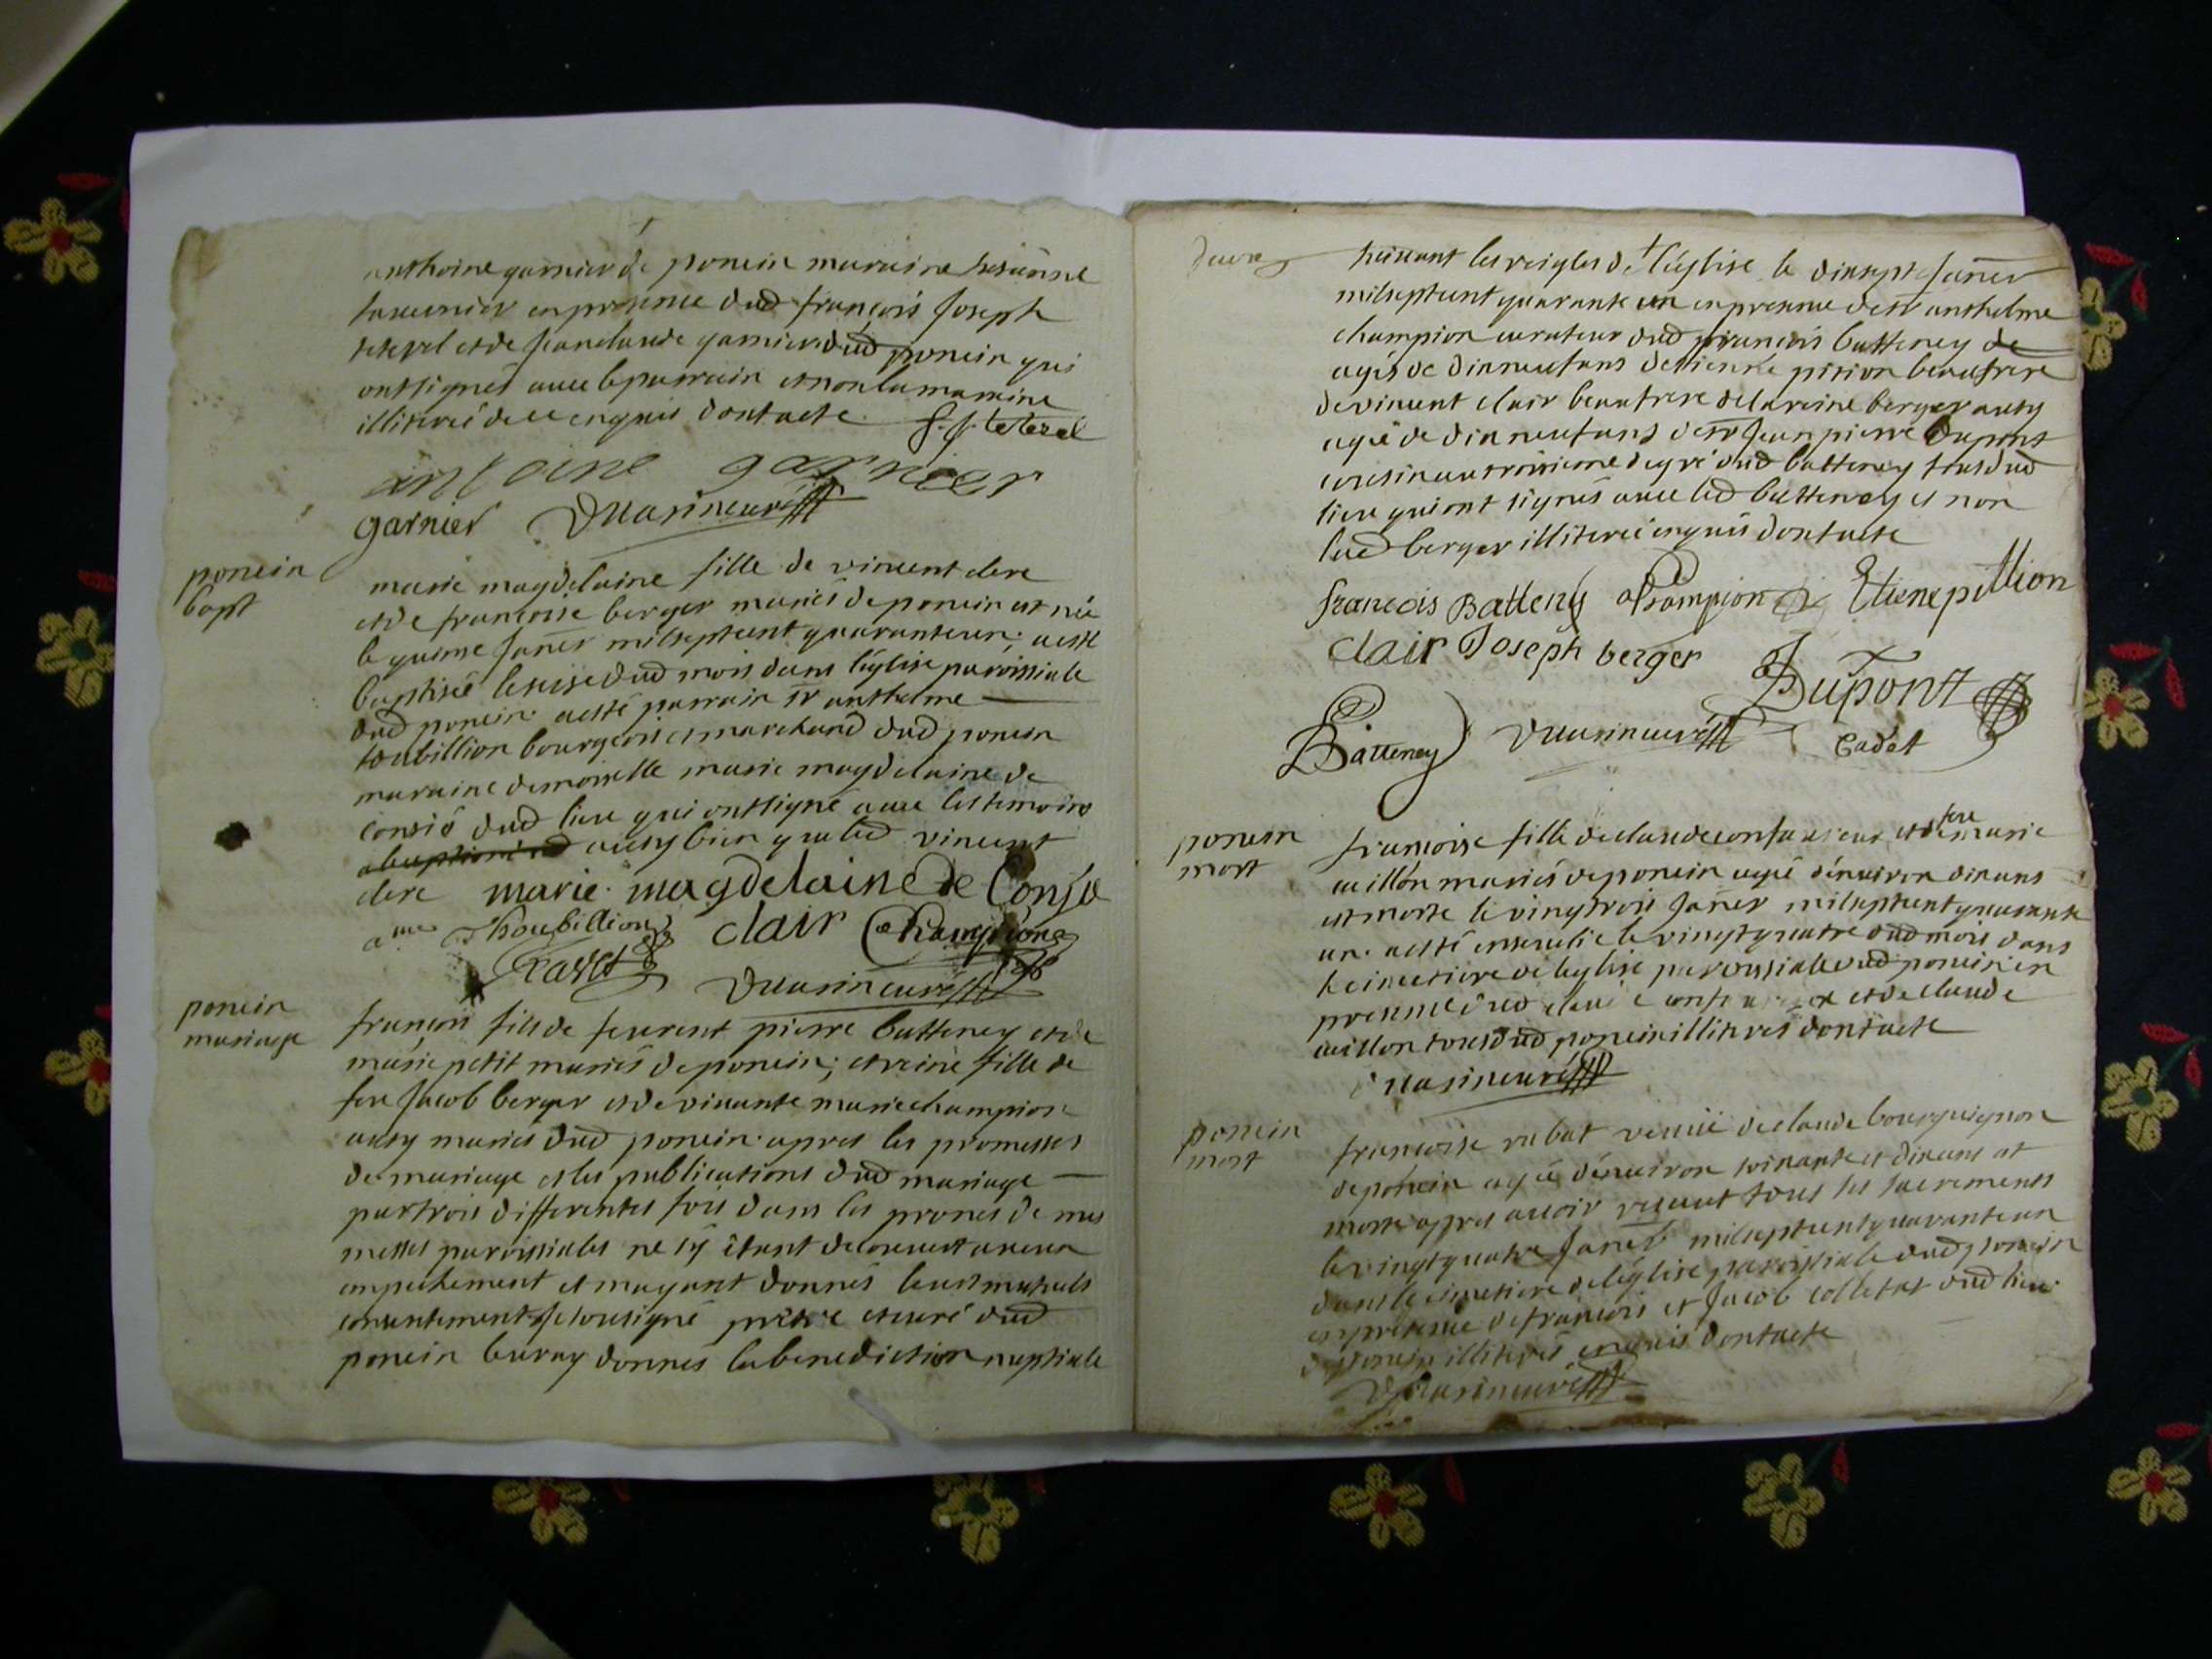 anthoine garnier de poncin maraine susanne
tavernier en presence dud françois Joseph
tetezel et de Jean claude garnier dud poncin qui
ont signés avec le parrain et non la maraine
illiterée de ce enquis dont acte. f. J. tetezel
antoine garnier
garnier
poncin
bapt
marie magdelaine fille de vincent clere
et de françoise berger mariés de poncin est née
le quinse Janer milseptcent quarante un; a esté
baptisée le seise dud mois dans léglise paroissiale
dud poncin. a esté parrain sr anthelme
toubillion bourgeois et marchand dud poncin
maraine demoiselle marie magdelaine de
consié dud lieu qui ont signé avec les temoins
aussy bien que led vincent
clere marie magdelaine de Consié
ame Thoubillion clair Champion
poncin
mariage
françois fils de feu pierre batteney et de
marie petit mariés de poncin; et reine fille de
feu Jacob berger et de vivante marie champion
aussy mariés dud poncin. apres les promesses
de mariage et les publications dud mariage
par trois differentes fois dans les prones de mes
messes paroissiales ne sÿ êtant decouvert aucun
empechement et mayant donnés leurs mutuels
consentement Je sousigné prêtre et curé dud
poncin leur ay donnés la benediction nuptiale
suivant les reigles de léglise le dixsept Janer
milseptcent quarante un en presence de sr anthelme
champion curateur dud françois batteney de
agés de dixneuf ans détienne pition beaufrere
de vincent clair beaufrere de la reine berger aussy
agée de dix neuf ans de sr Jean pierre Dupont
cousin au troisieme degré dud batteney tous dud
lieu qui ont signés avec led batteney et non
lad berger illiterée enquis dont acte
francois Batteney Champion Etiene pition
clair Joseph berger
Dupont
Batteney
Cadet
poncin
mort
francoise fille de claude et de feue marie
cuillon mariés de poncin agée dénviron dix ans
est morte le vingtrois Janer milseptcent quarante
un. a esté ensevelie le vingtquatre dud mois dans
le cimetiere de léglise paroissiale dud poncin en
presence dud claude et de claude
cuillon tous dud poncin illiterés dont acte
poncin
mort
francoise rubat veuve de claude bourguignon
de poncin agée dénviron soixante et dix ans est
morte appres avoir receut tous les sacrements
le vingtquatre Janer milseptcent quarante un
dans le cimetiere de léglise paroissiale dud poncin
en presence de francois et Jacob colletat dud lieu
de poncin illiterés enquis dont acte